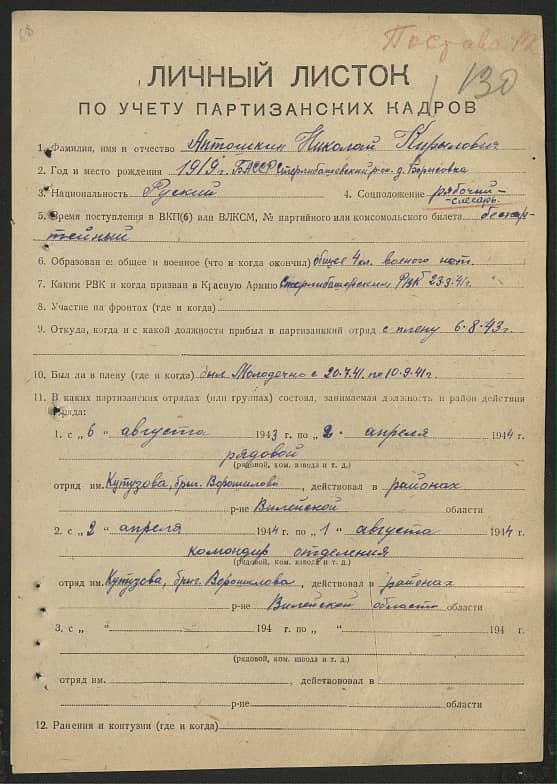 68
Поставы 12
130
ЛИЧНЫЙ ЛИСТОК
ПО УЧЕТУ ПАРТИЗАНСКИХ КАДРОВ
1. Фамилия, имя и отчество Антошкин Николай Кирылович
2. Год и место рождения 1919 г. БАССР Стерлибашевский р-он. д. Борисовка
3. Национальность Руский 4. Соцположение рабочий-
-слесарь
5. Время поступления в ВКП(б) или ВЛКСМ, № партийного или комсомольского билета беспар-
тийный
6. Образование: общее и военное (что и когда окончил) общее 4 кл. военного нет.
7. Каким РВК и когда призван в Красную Армию Стерлибашевским РВК 23.3.41 г.
8. Участие на фронтах (где и когда)
9. Откуда, когда и с какой должности прибыл в партизанский отряд с плену 6-8-43 г.
10. Был ли в плену (где и когда) был Молодечно с 20.7.41. по 10.9.41 г.
11. В каких партизанских отрядах (или группах) состоял, занимаемая должность и район действия
отряда:
1. с „6 “ августа 1943 г. по „2 “ апреля 1944 г.
рядовой
(рядовой, ком. взвода и т. д.)
отряд им. Кутузова, бриг. Ворошилова, действовал в районах
р-не Вилейской области
2. с „2 “ апреля 1944 г. по „1 “ августа 1944 г.
командир отделения
(рядовой, ком. взвода и т. д.)
отряд им. Кутузова, бриг. Ворошилова, действовал в районах
р-не Вилейской области области
3. с „ “ 194 г. по „ “ 194 г.
(рядовой, ком. взвода и т. д.)
отряд им. , действовал в
р-не области
12. Ранения и контузии (где и когда)